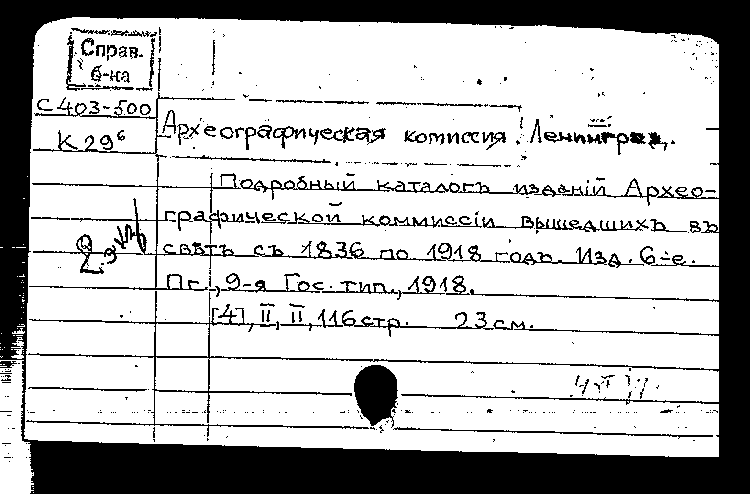 Справ.
б-ка
С403-500
К 29⁶
Археографическая комиссия. Ленинград.
Подробный каталогъ изданій Архео-
графической коммиссіи вышедшихъ въ
свѣтъ съ 1836 по 1918 годъ. Изд. 6-е.
Пг., 9-я Гос. тип., 1918.
[4], II, II, 116 стр. 23 см.